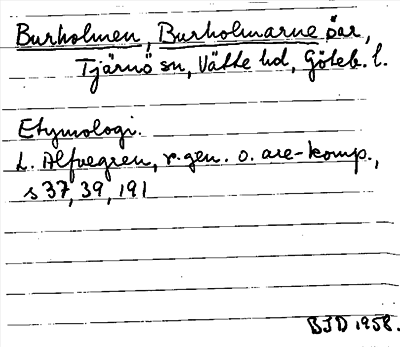 Burholmen, Burholmarne öar,
Tjärnö sn, Vätte hd, Göteb. l.
Etymologi.
L. Alfvegren, r. gen. o. are-komp.,
s 37, 39, 191
BJD 1958.